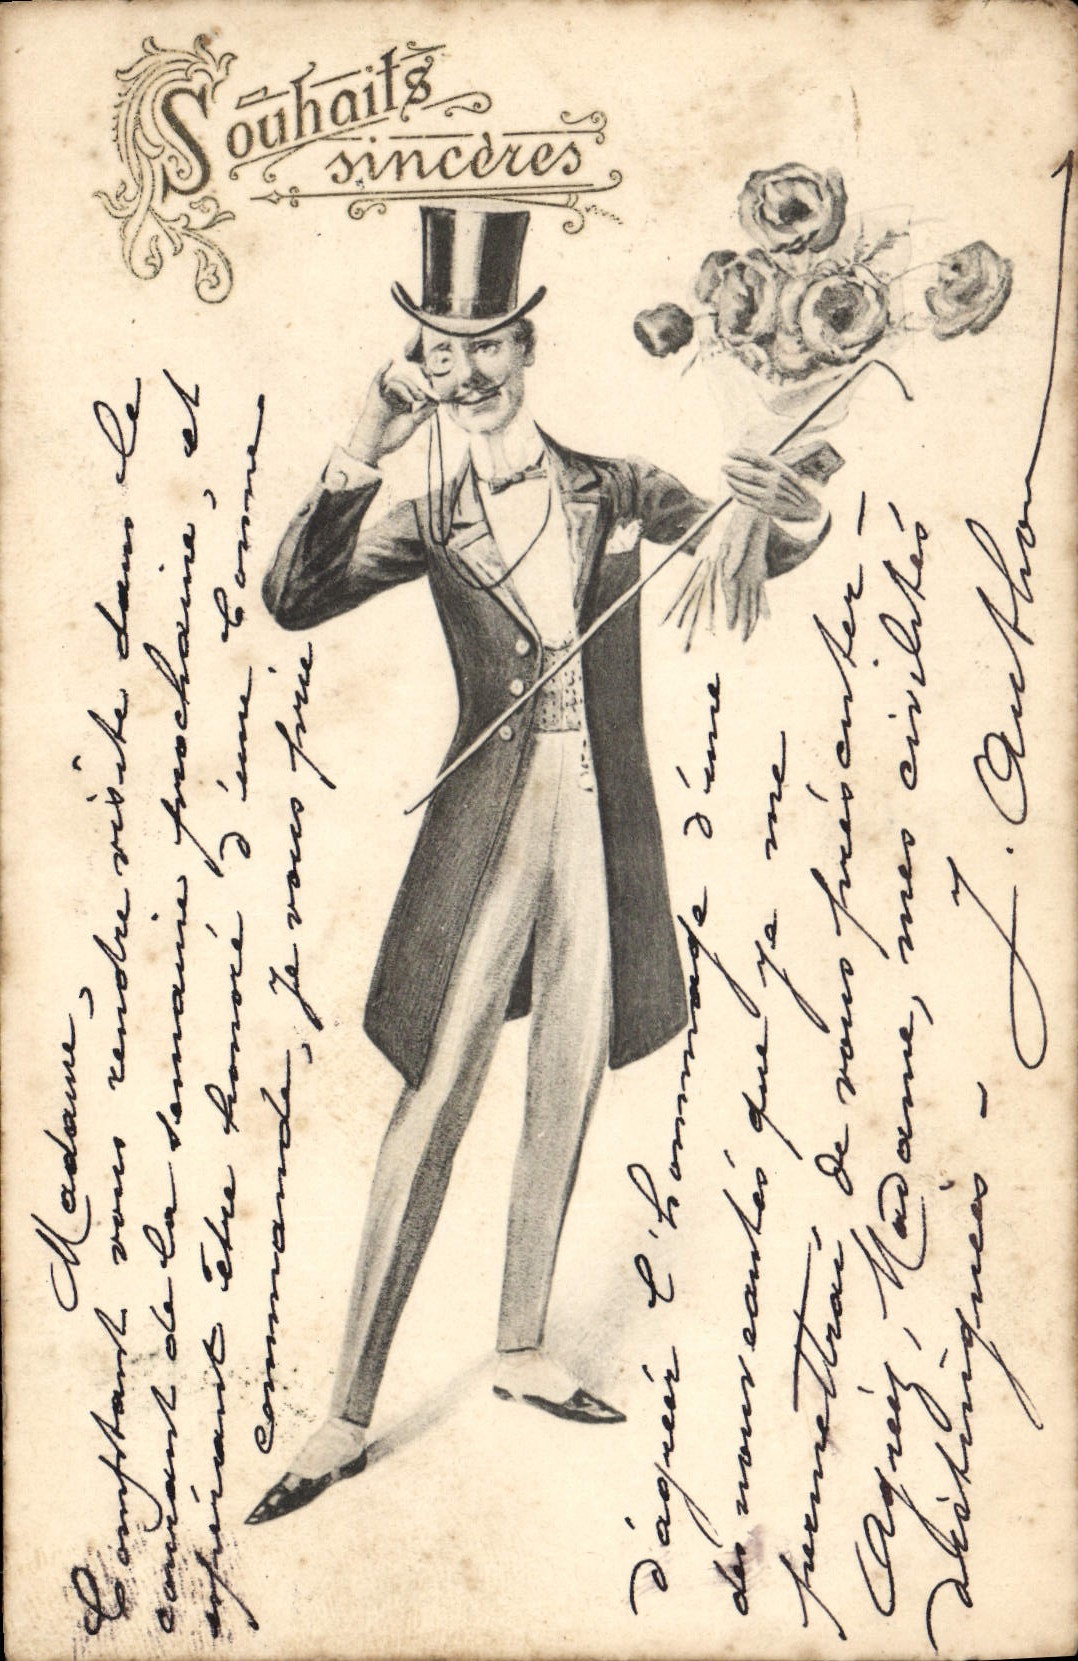 Souhaits
sincères
Madame,
Comptant vous rendre visite dans le
courant de la semaine prochaine, et
espérant être honoré d'une bonne
commande, je vous prie
d'agréér l'hommage d'une
des nouveautés que je me
permettrai de vous présenter –
Agréez, Madame, mes civilités
distinguées –
J. Authon